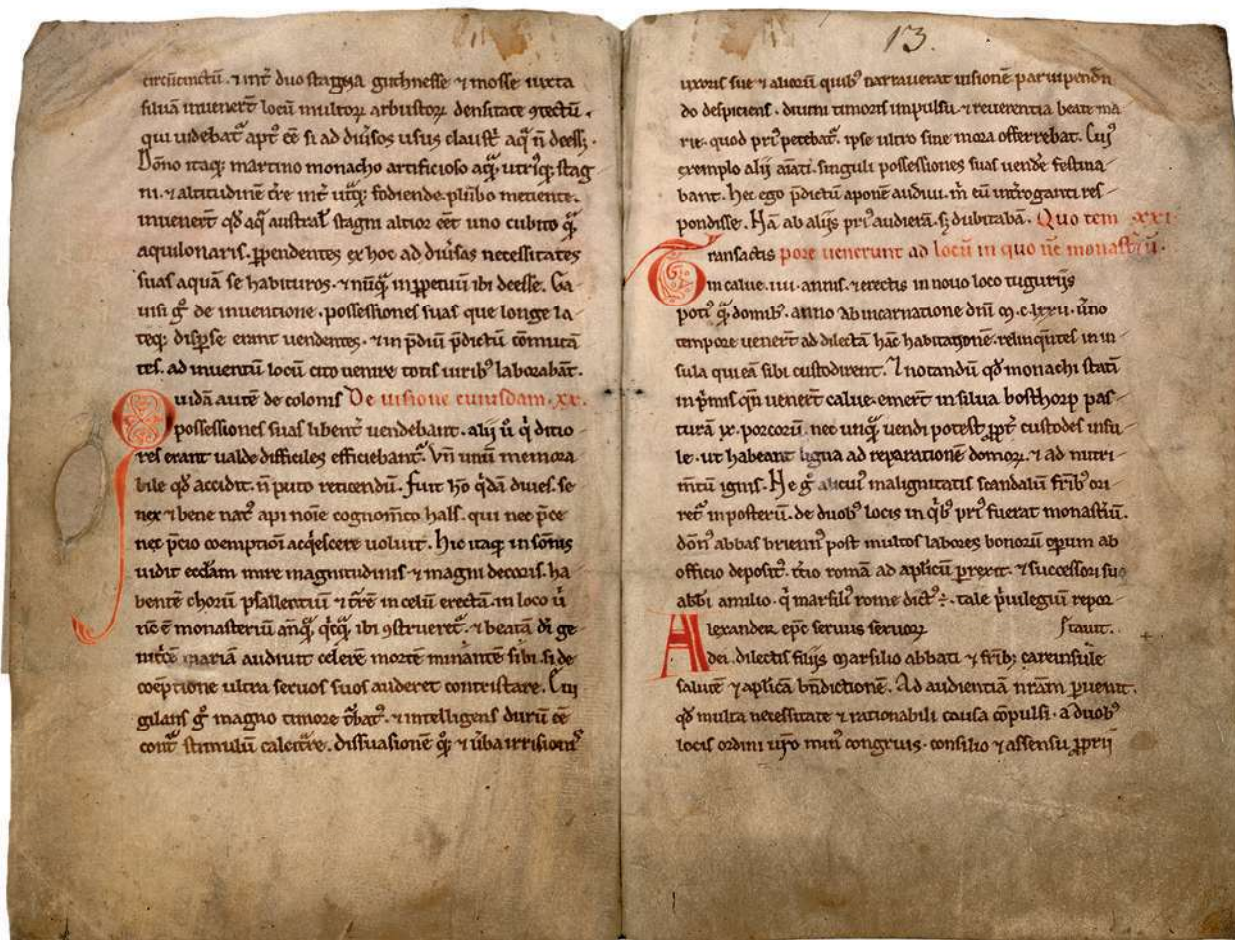 circūcinctū. ⁊ int̄ duo stagna guthnesse ⁊ mosse iuxta
siluā inuenert̄ locū multoꝝ arbustoꝝ densitate ꝯtectū.
qui uidebat᷑ apt᷒ eē si ad diūsos usus claustᷓ aqᷓ n̄ deess&.
Dōno itaqꝫ martino monacho artificioso aqᷓꝫ utriꝰqꝫ stag
ni. ⁊ altitudinē tr̄e int̄ utᷓqꝫ fodiende plūbo metiente.
inuenert̄ qđ aqᷓ austral̄ stagni altior eēt uno cubito qᷓ
aquilonaris. ꝑpendentes ex hoc ad diūsas necessitates
suas aquā se habituros. ⁊ nūqᷓ inꝑpetuū ibi deesse. Ga
uisi gͦ de inuentione. possessiones suas que longe la
teqꝫ disꝑse erant uendentes. ⁊ in p̄diū p̄dictū cōmutā
tes. ad inuentū locū cito uenire totis uiribꝰ laborabāt.
Quidā autē de colonis De uisione cuiusdam. xx.
possessiones suas libent̄ uendebant. alij ū qͥ ditio
res erant ualde difficiles efficiebant᷑. Vn̄ unū memora
bile qđ accidit. n̄ puto reticendū. Fuit hō qͥdā diues. se
nex ⁊ bene natꝰ api noīe cognomīto hals. qui nec p̄ce
nec p̄cio coemptioī acqͥescere uoluit. Hic itaqꝫ in sōnis
uidit eccl̄am mire magnitudinis ⁊ magni decoris. ha
bentē chorū psallentiū ⁊ t᷑rē in celū erectā. in loco ū
nc̄ ē monasteriū anͭqᷓ qͥcqᷓ ibi ꝯstrueret᷑. ⁊ beatā di ge
nitͥcē mariā audiuit celerē mortē minantē sibi. si de
coēptione ultra seruos suos auderet contristare. Eui
gilans gͦ magno timore t᷑batꝰ. ⁊ intelligens durū eē
contᷓ stimulū calcitᷓre. dissuasionē qͦqꝫ ⁊ ūba irrisionīs
13.
uxoris sue ⁊ alioꝝ quibꝰ narrauerat uisionē paruipendēn
do despiciens. diuini timoris impulsu. ⁊ reuerentia beate ma
rie. quod priꝰ petebat᷑. ipse ultro sine mora offerrebat. Cuiꝰ
exemplo alij aīati. singuli possessiones suas uend̄e festina
bant. Hec ego p̄dictū aponē audiui. m̄ eū int̄roganti res
pondisse. Nā ab alijs priꝰ audierā. sꝫ dubitabā. Quo tem xxi.
Transactis pore uenerunt ad locū in quo nc̄ monast̄iū.
in calue. iiii. annis. ⁊ erectis in nouo loco tugurijs
potiꝰ qᷓ domibꝰ. anno ab incarnatione dn̄i ꝏ. c. lxxv. ūno
tempore uenert̄ ad dilectā hāc habitationē. relinqͥntes in in
sula qui eā sibi custodirent. ⁊ notandū qđ monachi stati
in p̄mis qn̄ uenert̄ calue. emert̄ in silua bosthorp pas
turā xx. porcorū. nec unqᷓ uendi potest ꝓpt̄ custodes insu
le. ut habeant ligna ad reparationē domoꝝ. ⁊ ad nutri
m̄tū ignis. Ne gͦ alicuiꝰ malignitatis scandalū fr̄ibꝰ ori
ret᷑ in posterū. de duobꝰ locis in qͥbꝰ priꝰ fuerat monast̄iū.
dōnꝰ abbas briennꝰ post multos labores bonorū opum ab
officio depositꝰ. t̄tio romā ad aplicū ꝑrexit. ⁊ successori suo
abbi amilio. qͥ marsiliꝰ rome dictꝰ ÷. tale p̄uilegiū repor
Alexander epc̄ seruus seruoꝝ ſtauit.
dei. dilectis filijs marsilio abbati ⁊ fr̄ibꝫ careinsule
salutē ⁊ aplicā bn̄dictionē. Ad audientiā nr̄am ꝑuenit.
qđ multa necessitate ⁊ rationabili causa cōpulsi. a duobꝰ
locis ordini ur̄o minꝰ congruis. consilio ⁊ assensu ꝓprij